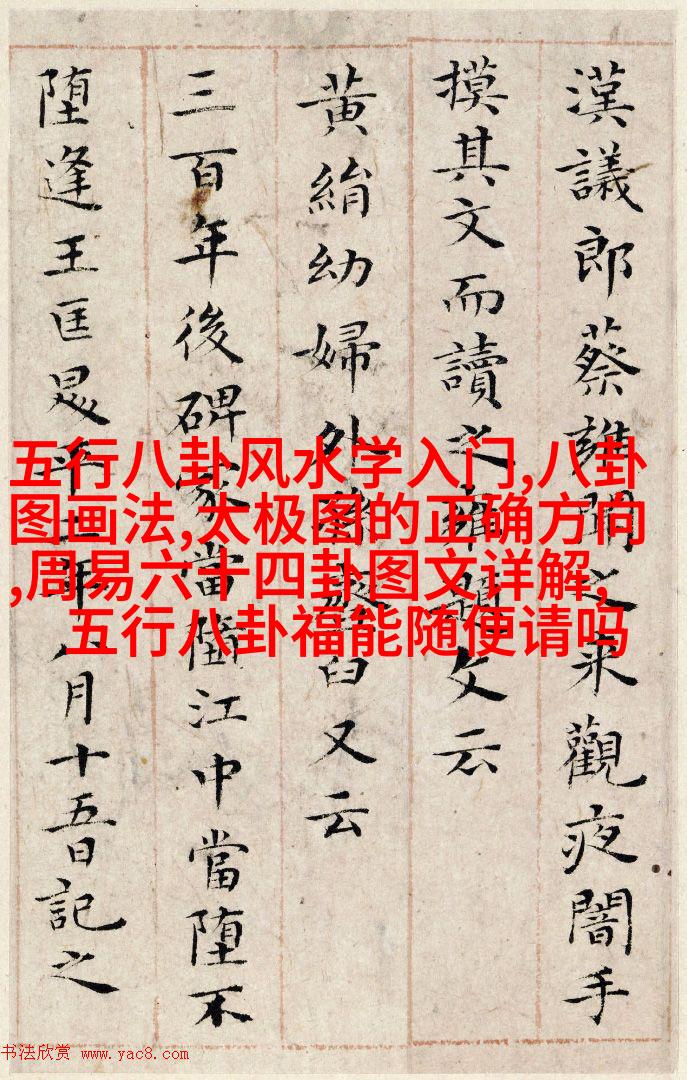 漢議郎蔡雍聞之来觀夜闇手
摸其文而讀之雍題文云
黄絹幼婦外孫臼又云
三百年後碑冢當墮江中當堕不
堕逢王匡昇平二年八月十五日記之
五行八卦风水学入门,八卦
图画法,太极图的正确方向
,周易六十四卦图文详解,
五行八卦福能随便请吗
书法欣赏 www.yac8.com